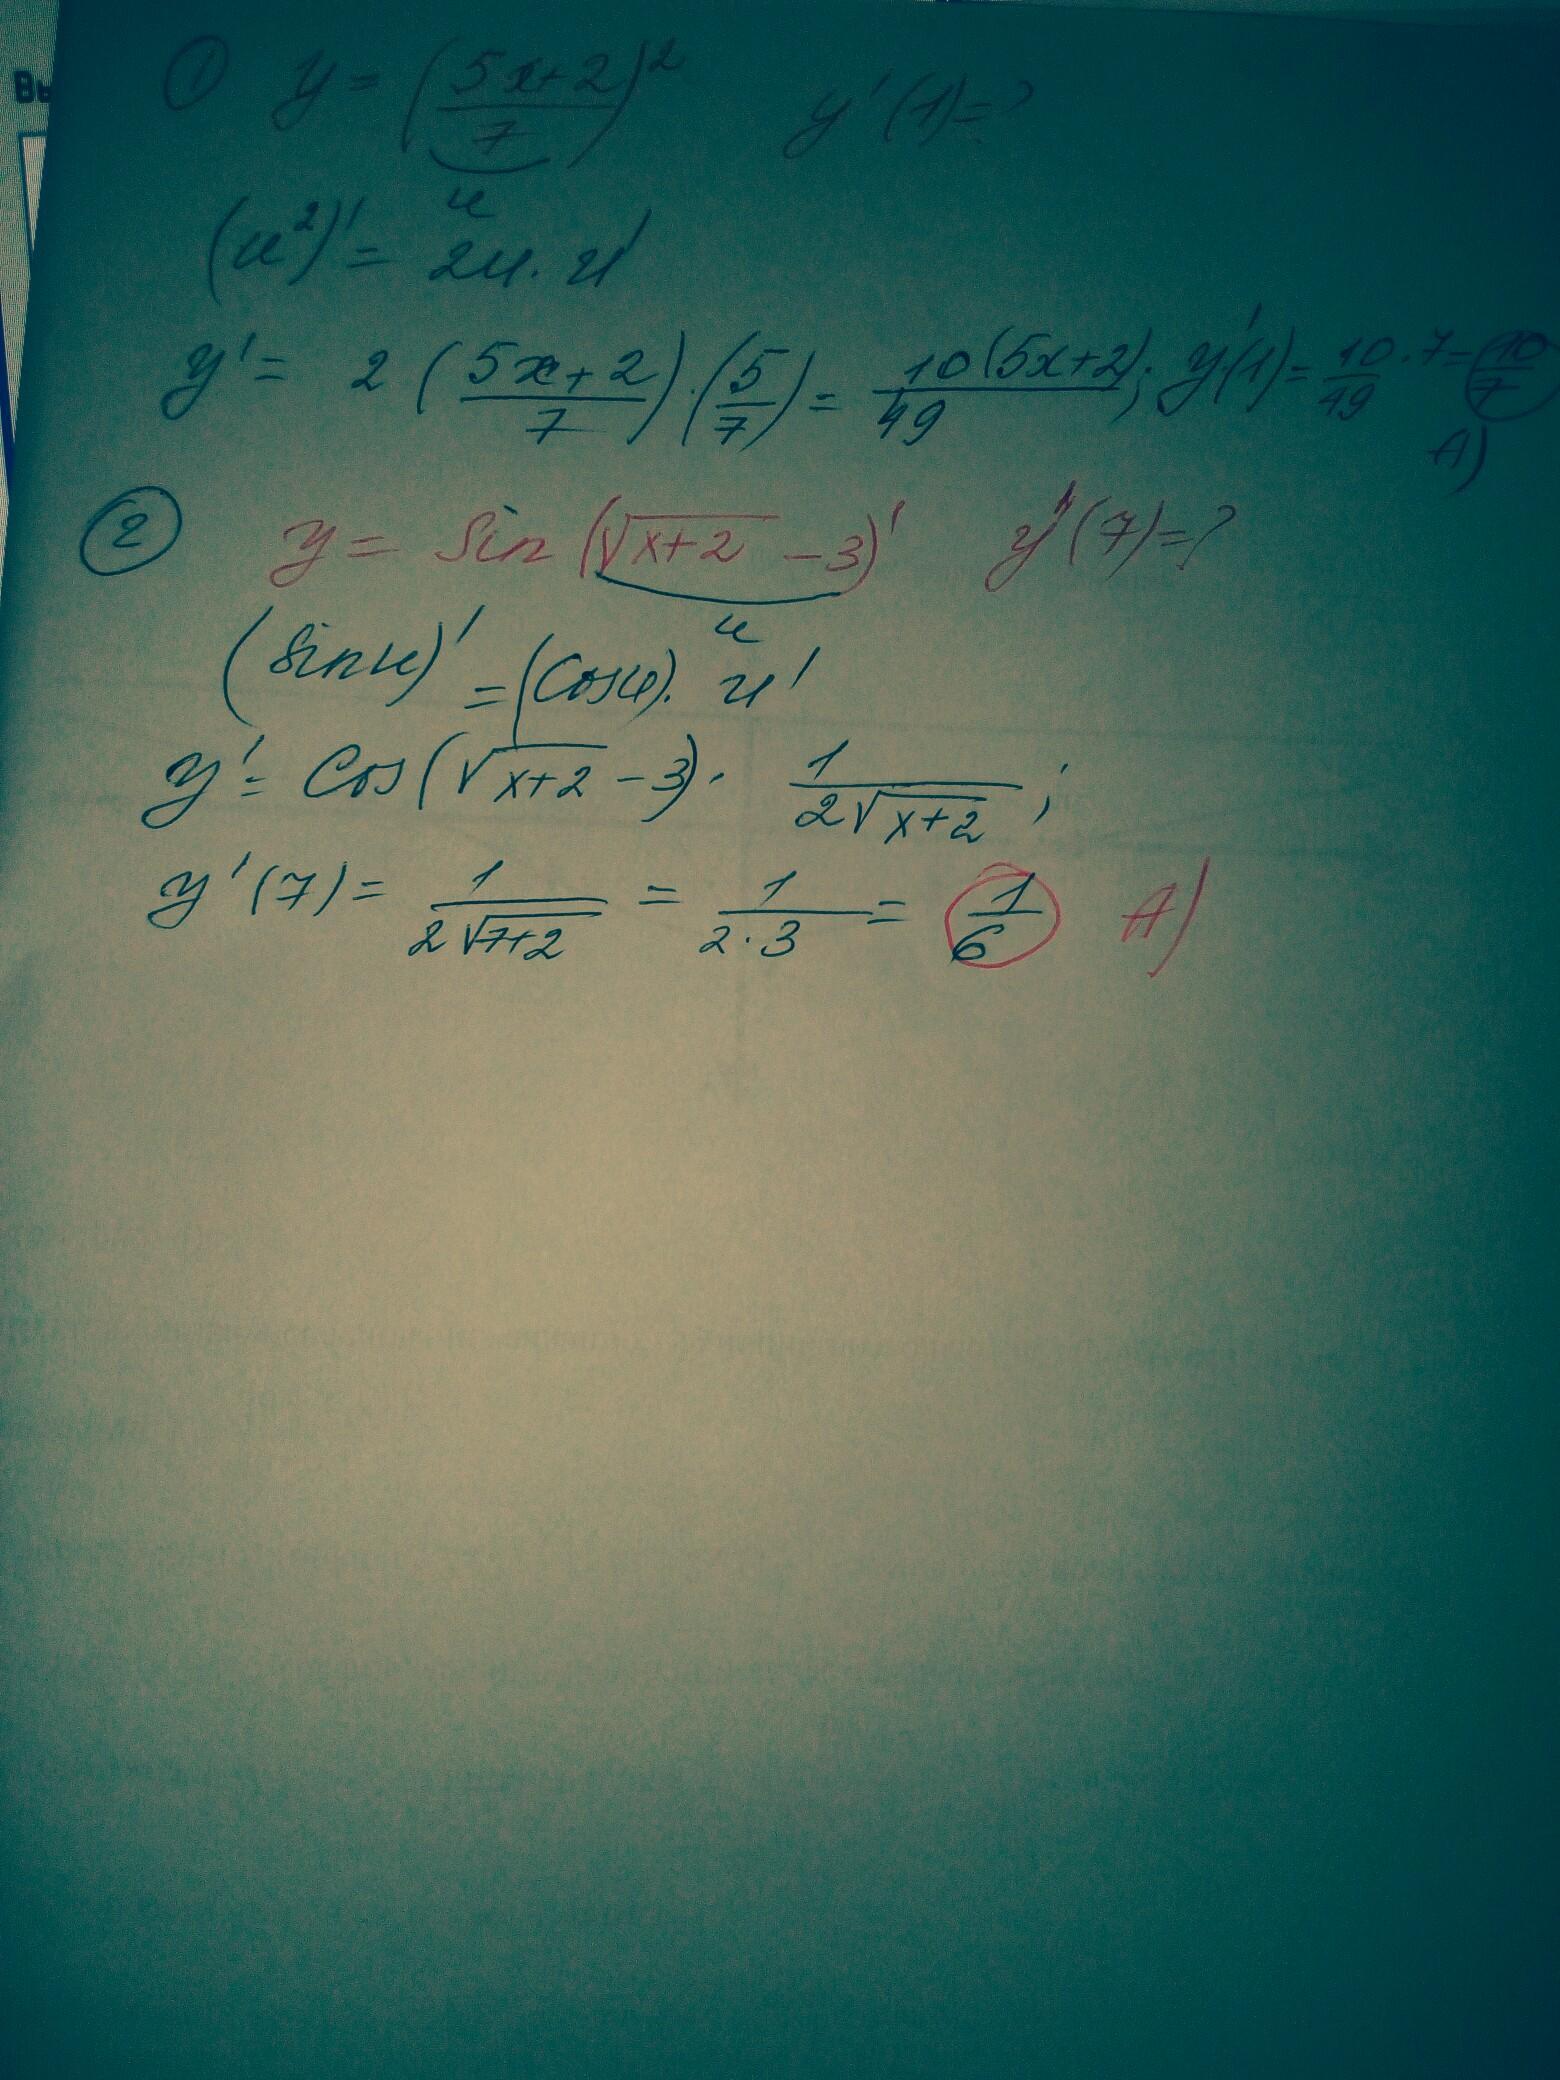 Вы
① y = ((5x+2)/7)² y'(1)=?
u
(u²)' = 2u · u'
y' = 2 ((5x+2)/7) · (5/7) = 10(5x+2)/49; y'(1) = 10/49 · 7 = 10/7
A)
② y = Sin (√(x+2) - 3)' y'(7)=?
u
(Sin u)' = (Cos u) · u'
y' = Cos (√(x+2) - 3) · 1/(2√(x+2));
y'(7) = 1/(2√(7+2)) = 1/(2·3) = 1/6 A)